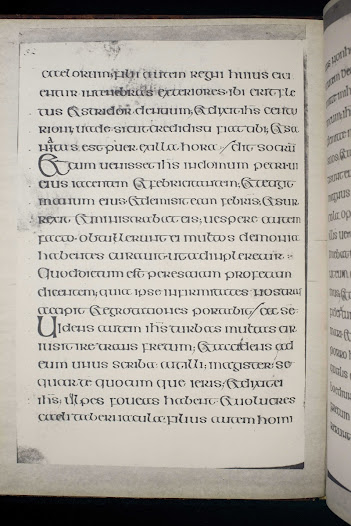 caelorum; filii autem regni huius eici
entur in tenebras exteriores; ibi erit fle
tus & stridor dentium; & dixit ihs centu
rioni; uade sicut credidisti fiat tibi; & sa
natus est puer ex illa hora
& cum uenisset ihs in domum petri ui
eius iacentem & febricitantem; & tetigit
manum eius & demisit eam febris; & sur
rexit & ministrabat eis; uespere autem
facto obtullerunt ei multos demonia
habentes curauit ut adimpleretur
Quod dictum est per esaiam profetam
dicentem; quia ipse infirmitates nostras
accipit & egrotationes portabit
Uidens autem ihs turbas multas cir
iusit ire trans fretum; & accedens ad
eum unus scriba ait illi; magister se
quar te quocumque ieris; & dixit ei
ihs; uulpes foueas habent & uolucres
caeli tabernacula filius autem homi